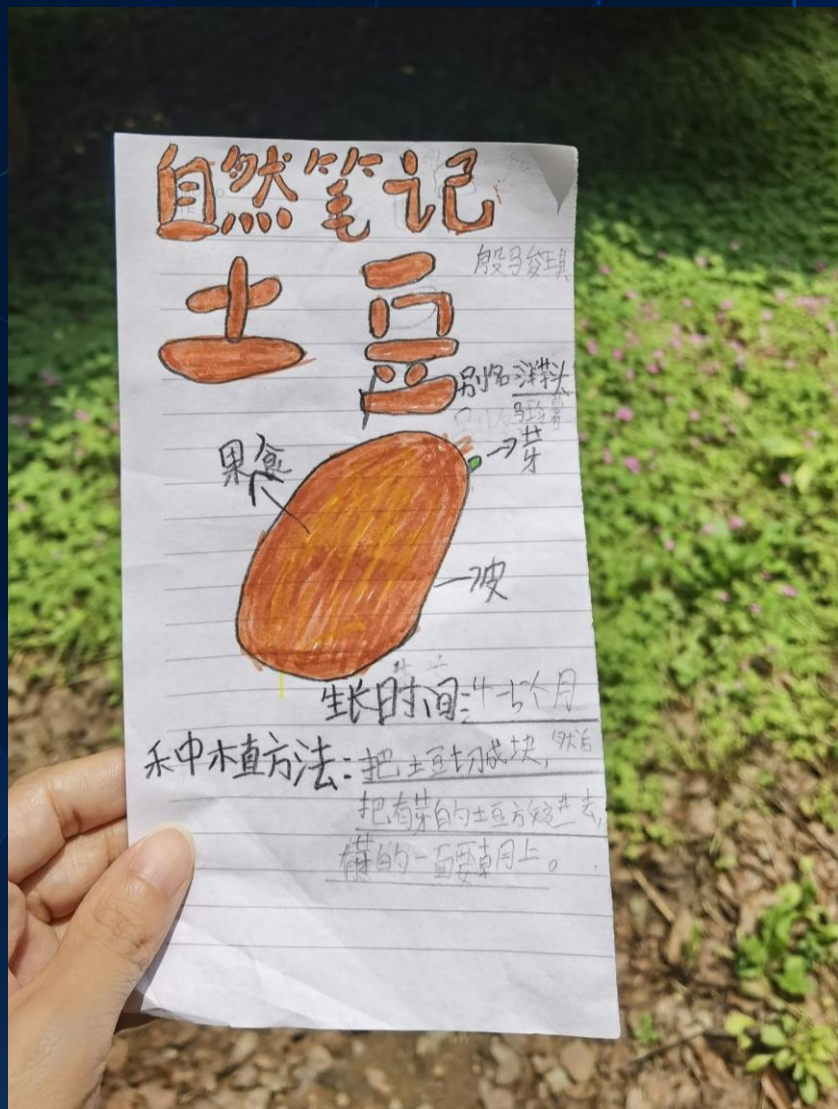 自然笔记
土豆
殷子俊琪
别名洋芋头
马铃薯
芽
果食
皮
生长时间:4-5个月
种植方法:把土豆切成块,然后
把有芽的土豆放进去,
有芽的一面要朝上。